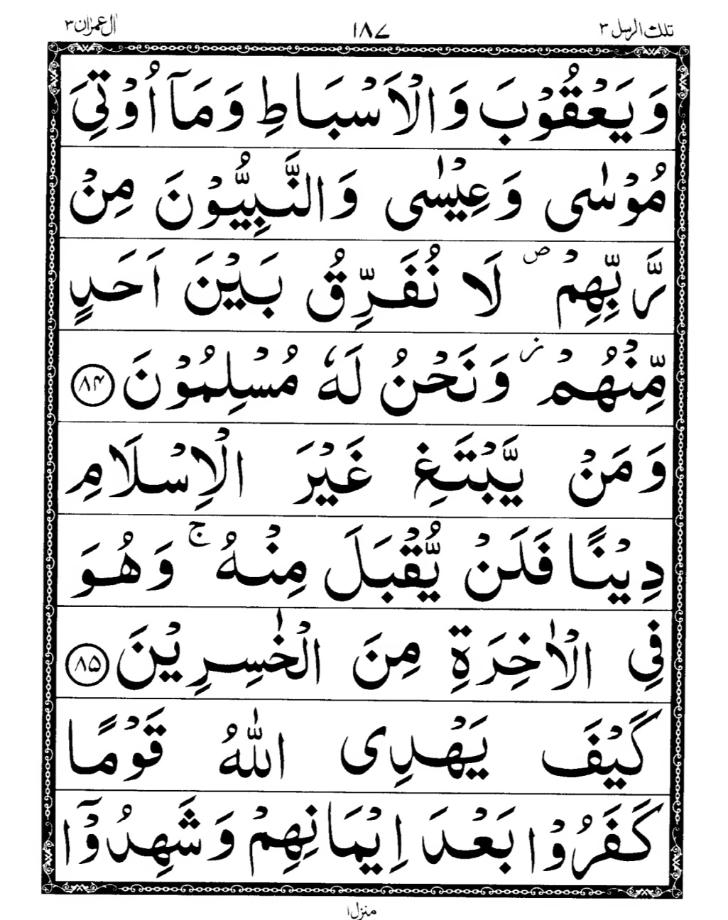 تلك الرسل ٣ ١٨٧ اٰل عمرٰن ٣
وَ يَعْقُوْبَ وَ الْاَسْبَاطِ وَ مَاۤ اُوْتِيَ
مُوْسٰى وَ عِيْسٰى وَ النَّبِيُّوْنَ مِنْ
رَّبِّهِمْ ۪ لَا نُفَرِّقُ بَيْنَ اَحَدٍ
مِّنْهُمْ ؗ وَ نَحْنُ لَهٗ مُسْلِمُوْنَ ﴿۸۴﴾
وَ مَنْ يَّبْتَغِ غَيْرَ الْاِسْلَامِ
دِيْنًا فَلَنْ يُّقْبَلَ مِنْهُ ۚ وَ هُوَ
فِي الْاٰخِرَةِ مِنَ الْخٰسِرِيْنَ ﴿۸۵﴾
كَيْفَ يَهْدِى اللّٰهُ قَوْمًا
كَفَرُوْا بَعْدَ اِيْمَانِهِمْ وَ شَهِدُوْۤا
منزل ١